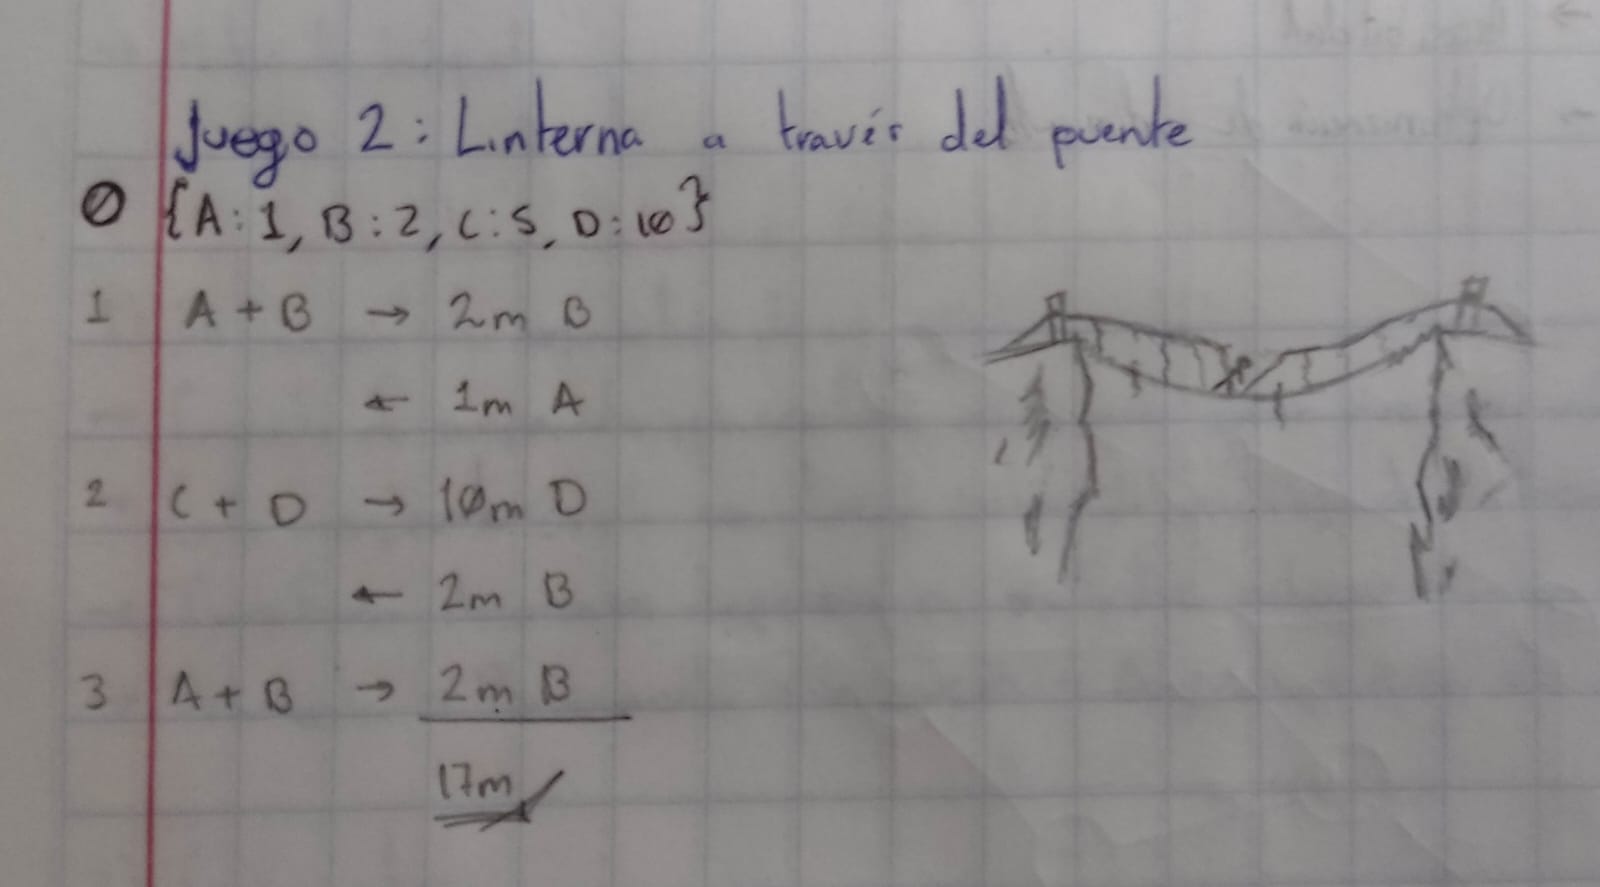 Juego 2: Linterna a través del puente
0 {A:1, B:2, C:5, D:10}
1 A + B → 2m B
← 1m A
2 C + D → 10m D
← 2m B
3 A + B → 2m B
17m ✓